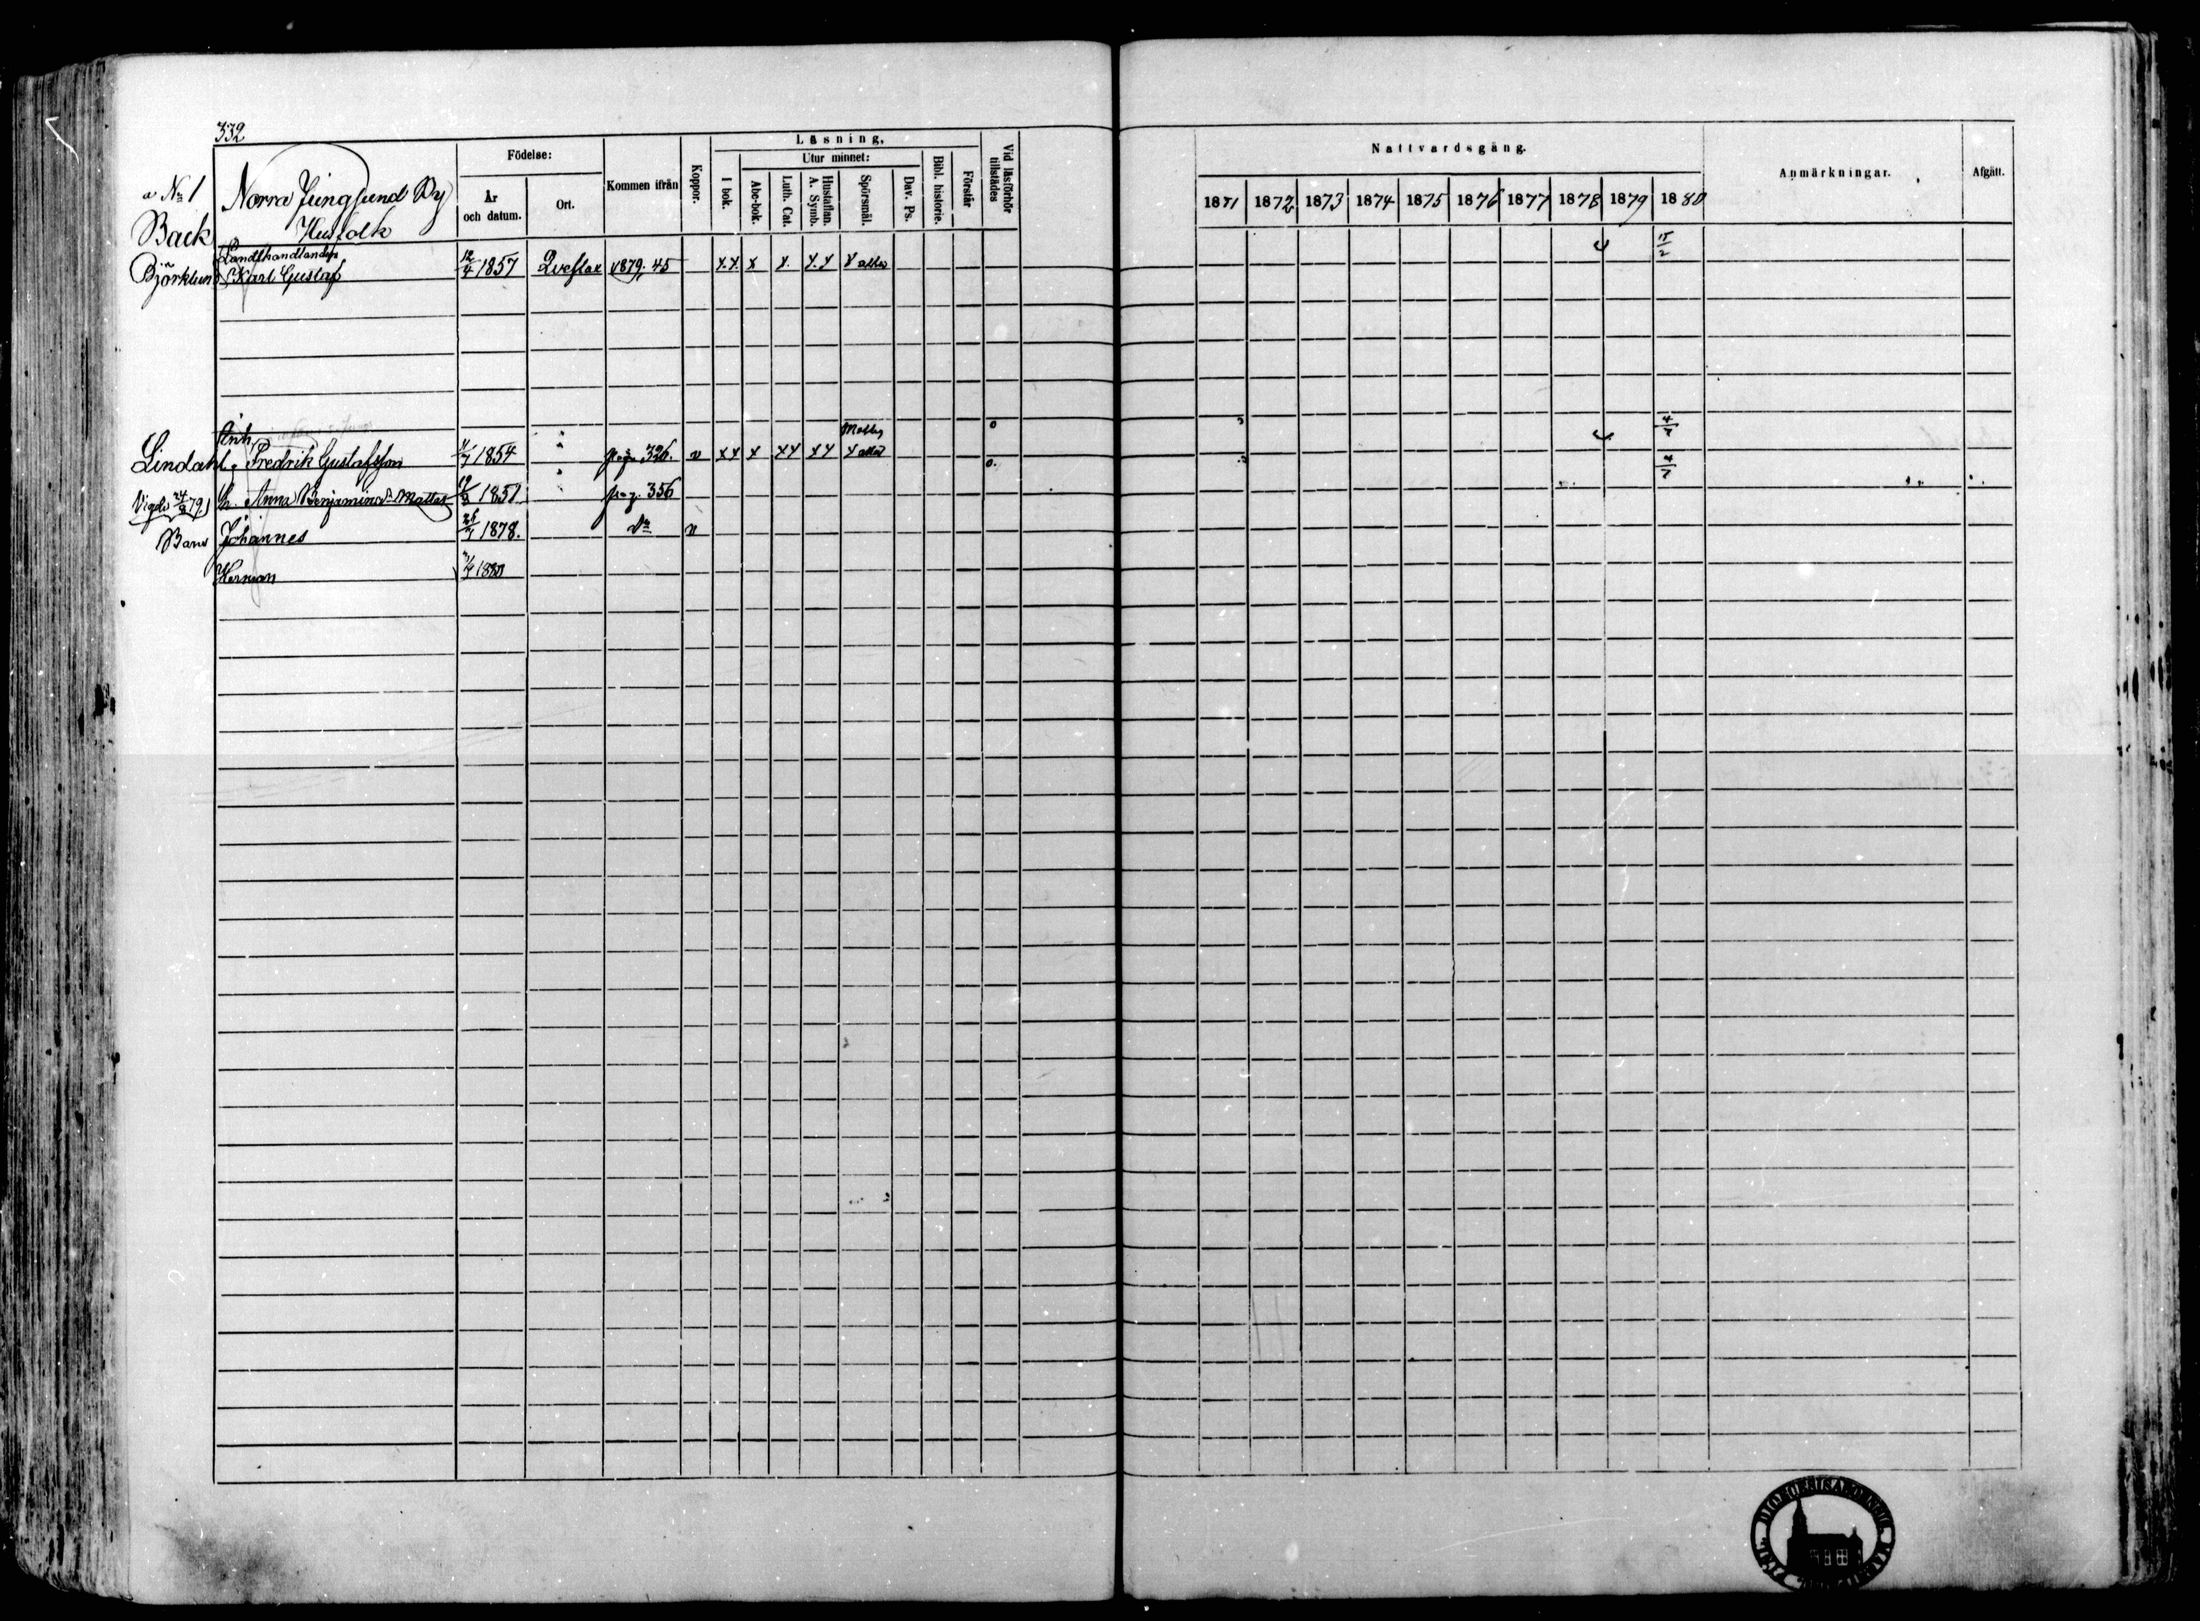 332
Läsning,
Födelse:
Kommen ifrån
Koppor.
I bok.
Utur minnet:
Bibl. historie.
Förstår
Vid läsförhör tillstädes
År och datum.
Ort.
Abc-bok.
Luth. Cat.
Hustaflan. A. Symb.
Spörsmål.
Dav. Ps.
Nattvardsgång.
Anmärkningar.
Afgått.
1871 1872 1873 1874 1875 1876 1877 1878 1879 1880
No 1 Norra Jungsund By
Back Husfolk
Landthandlanden
Björklund Karl Gustaf 12/4 1857 Qveflax 1879. 45 x.x. x x. x.x x alla 15/2
Inh. 4/7
Lindahl Fredrik Gustafsson 1854 pag. 326. v xx x xx xx x alla 4/7
Vigde 24/8 79 h. Anna Benjamins dr Mattas 1851 pag. 356
Barn Johannes 1878. Do v
Herman 1880